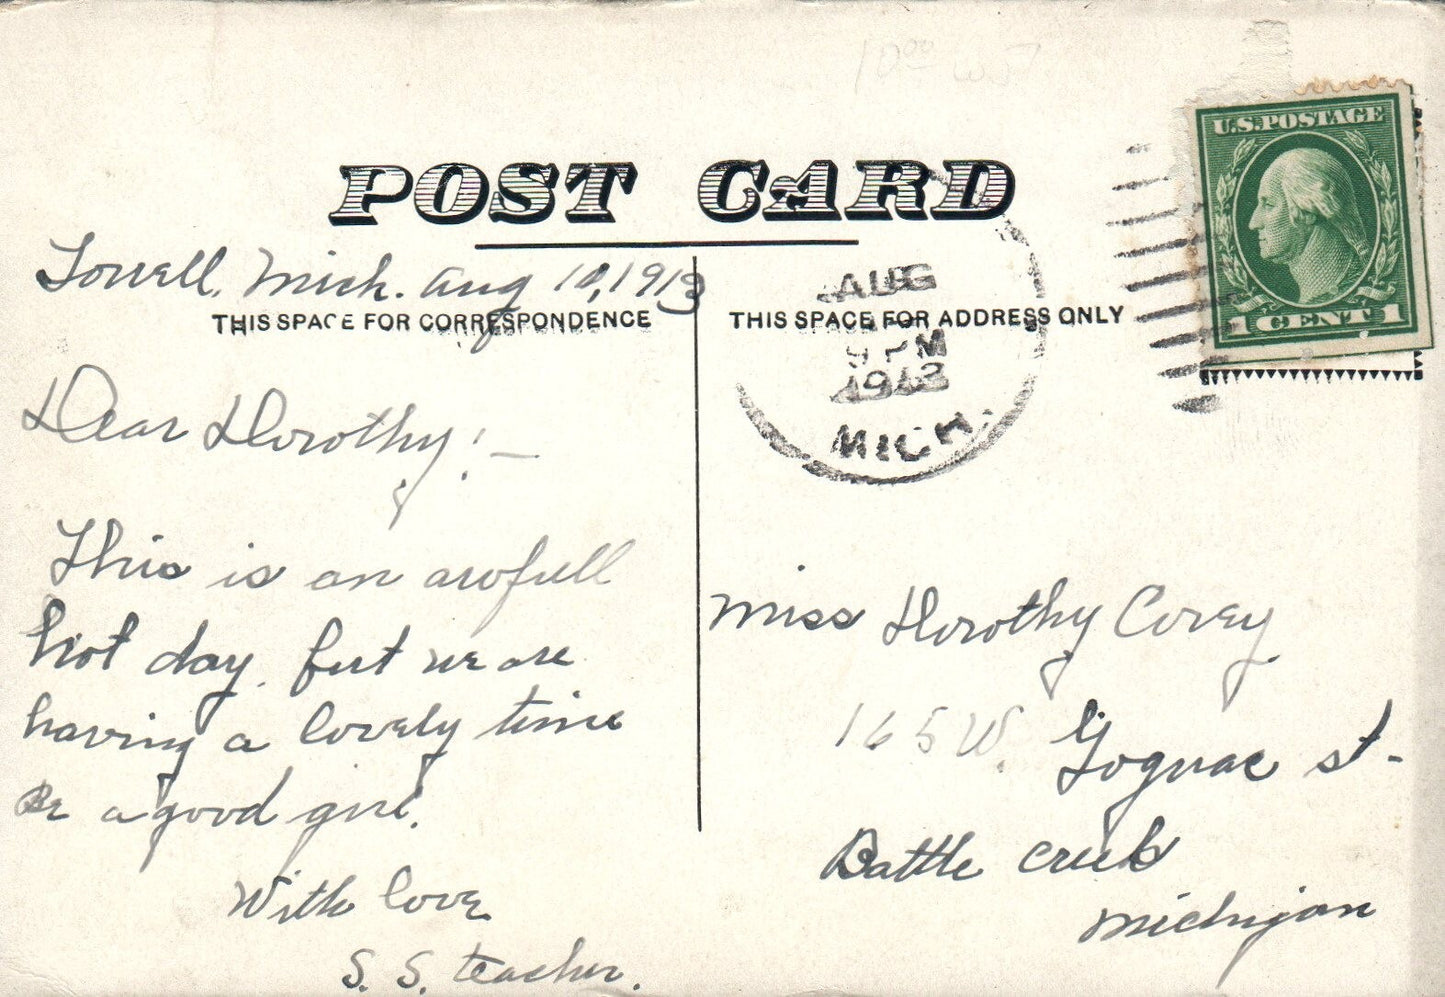 10⁰⁰ WJ
U.S. POSTAGE
1 CENT 1
POST CARD
Lowell, Mich. Aug 10, 1913
THIS SPACE FOR CORRESPONDENCE
THIS SPACE FOR ADDRESS ONLY
AUG
9 PM
1913
MICH.
Dear Dorothy! —
This is an awfull
hot day. but we are
having a lovely time
Be a good girl.
With love
S. S. teacher.
Miss Dorothy Corey
165 W. Gognac st-
Battle creek
Michigan